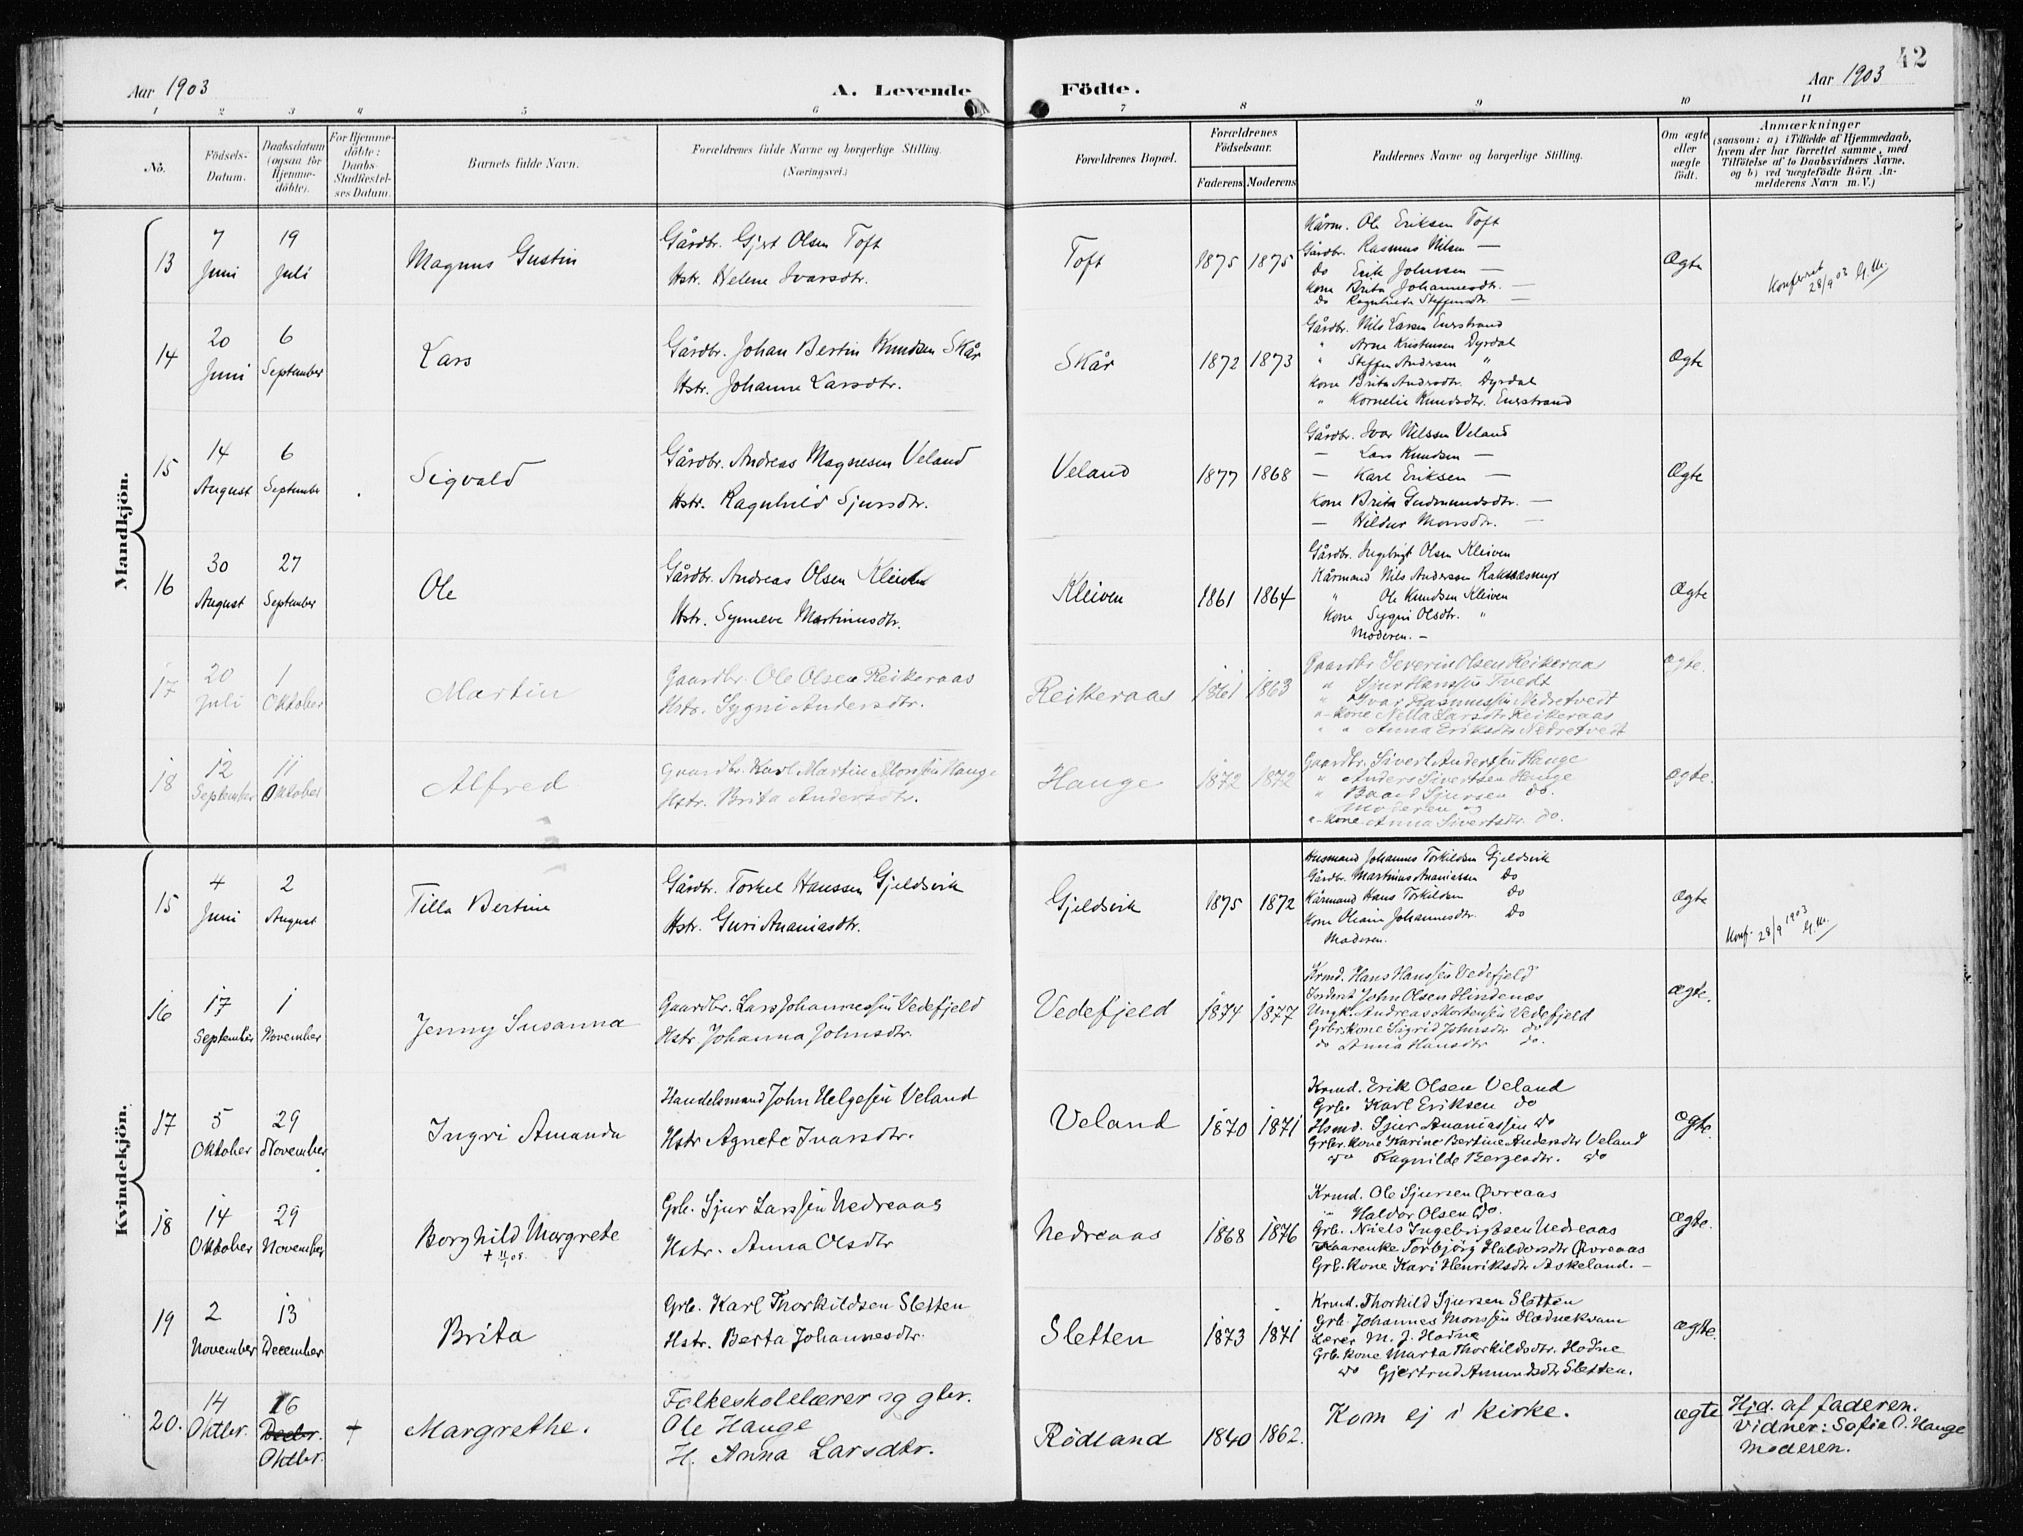 42
Aar 1903 A. Levende Födte. Aar 1903
1 2 3 4 5 6 7 8 9 10 11
No. Födsels-Datum. Daabsdatum (ogsaa for Hjemme-döbte). For Hjemme-döbte: Daabs-Stadfæstel-ses Datum. Barnets fulde Navn. Forældrenes fulde Navne og borgerlige Stilling. (Næringsvei.) Forældrenes Bopæl. Forældrenes Födselsaar. Faderens Moderens Faddernes Navne og borgerlige Stilling. Om ægte eller uægte födt. Anmærkninger (saasom: a) i Tilfælde af Hjemmedaab, hvem der har forrettet samme, med Tilföielse af to Daabsvidners Navne, og b) ved uægtefödte Börn An-melderens Navn m. V.)
Mandkjön.
13 7 Juni 19 Juli Magnus Gustin
Gårdbr. Gjert Olsen Toft
Hstr. Helene Ivarsdtr.
Toft 1875 1875
Kårm. Ole Eriksen Toft
Gårdbr. Rasmus Nilsen —
do Erik Johnsen —
Kone Brita Johannesdtr. —
do Ragnhilda Steffensdtr. —
Ægte
Konferert 28/9 03
14 20 Juni 6 September Lars
Gårdbr. Johan Bertin Knudsen Skår
Hstr. Johanne Larsdtr.
Skår 1872 1873
Gårdbr. Nils Larsen Enestrand
" Arne Kristensen Dyrdal
" Steffen Andersen "
Kone Brita Andersdtr. Dyrdal
" Kornelia Knudsdtr. Enestrand
Ægte
15 14 August 6 September Sigvald
Gårdbr. Andreas Magnesen Veland
Hstr. Ragnhild Sjursdtr.
Veland 1877 1868
Gårdbr. Ivar Nilssen Veland
— Lars Knudsen —
— Karl Eriksen —
Kone Brita Gudmundsdtr. —
— Hildur Monsdtr. —
Ægte
16 30 August 27 September Ole
Gårdbr. Andreas Olsen Kleiven
Hstr. Synneve Martinusdtr.
Kleiven 1861 1864
Gårdbr. Ingebrigt Olsen Kleiven
Kårmand Nils Anderssen
" Ole Knudsen Kleiven
Kone Sygni Olsdtr. "
Moderen. —
Ægte
17 20 Juli 1 Oktober Martin
Gaardbr. Ole Olsen Reikeraas
Hstr. Sygni Andersdtr.
Reikeraas 1861 1863
Gaardbr Severin Olsen Reikeraas
" Sjur Hanssen Tvedt
" Ivar Rasmussen Nedretvedt
"-Kone Nella Larsdtr Reikeraas
" " Anna Eriksdtr Nedretvedt
ægte.
18 12 September 11 Oktober Alfred
Gaardbr. Karl Martin Monsen Hauge
Hstr. Brita Andersdtr.
Hauge 1872 1872
Gaardbr. Sivert Andersen Hauge
" Anders Sivertsen Hauge
" Baard Sjursen do.
Moderen og
"-Kone Anna Sivertsdtr. do.
ægte.
Kvindekjön.
15 4 Juni 2 August Tilla Bertine
Gårdbr. Torkel Hanssen Gjeldsvik
Hstr. Guri Ananiasdtr.
Gjeldsvik 1875 1872
Husmand Johannes Torkildsen Gjeldsvik
Gårdbr. Martinus Ananiassen do
Kårmand Hans Torkildsen do
Kone Oleane Johannesdtr. do
Moderen.
Ægte
Konf. 28/9 1903
16 17 September 1 November Jenny Susanna
Gaardbr. Lars Johannessen Vedefjeld
Hstr Johanna Johnsdtr
Vedefjeld 1874 1877
Krmd. Hans Hanssen Vedefjeld
John Olsen Hindenæs
Ungk. Andreas Mortensen Vedefjeld
Grbr. Kone Sigrid Johnsdtr do
do Anna Hansdtr do.
ægte.
17 5 Oktober 29 November Ingri Amanda
Handelsmand John Helgesen Veland
Hstr Agnete Ivarsdtr.
Veland 1870 1871
Krmd. Erik Olsen Veland
Grbr Karl Eriksen do
Hsmd. Sjur Ananiassen do
Grbr. Kone Karine Bertine Andersdtr Veland
do Ragnilde Bergesdtr. do
ægte.
18 14 Oktober 29 November Borghild Margrete
† 11/1 08.
Grb. Sjur Larssen Nedreaas
Hstr. Anna Olsdtr
Nedreaas 1868 1876
Krmd. Ole Sjursen Øvreaas
" Haldor Olsen do.
Grb. Niels Ingebrigtsen Nedreaas
Kaarenke Torbjörg Haldorsdtr Øvreaas
Grb. Kone Kari Henriksdtr Askeland. —
ægte.
19 2 November 13 December Brita
Grb. Karl Thorkildsen Sletten
Hstr. Berta Johannesdtr.
Sletten 1873 1871
Krmd. Thorkild Sjursen Sletten
Grb. Johannes Monssen Hednekvam
Lærer M. J. Hodne
Grb. Kone Marta Thorkildsdtr. Hodne
do Gjertrud Amundsdtr Sletten.
ægte.
20. 14 Oktbr. 16 Decbr. Oktbr. † Margrethe.
Folkeskolelærer og gbr.
Ole Hauge
H. Anna Larsdtr.
Rødland 1840 1862.
Kom ej i kirke.
ægte
Hjd. af faderen.
Vidner: Sofia O. Hauge
Moderen.